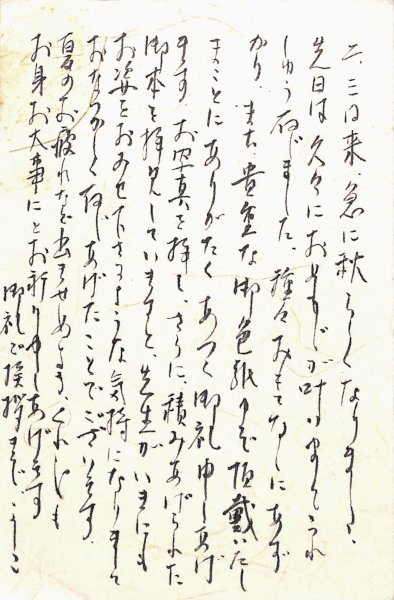 二、三日来、急に秋らしくなりました、
先日は久々におめもじが叶いましてうれ
しゅう存じました、種々おもてなしにあず
かり、また貴重な御色紙まで頂戴いたし
まことにありがたくあつく御礼申しあげ
ます、お写真を拝し、さらに、積みあげられた
御本を拝見していますと、先生がいまにも
お姿をおみせ下さるような気持になりまして
おなつかしく存じあげたことでございます、
夏のお疲れなど出ませぬよう、くれぐれも
お身お大事にとお祈り申しあげます
御礼かたがた